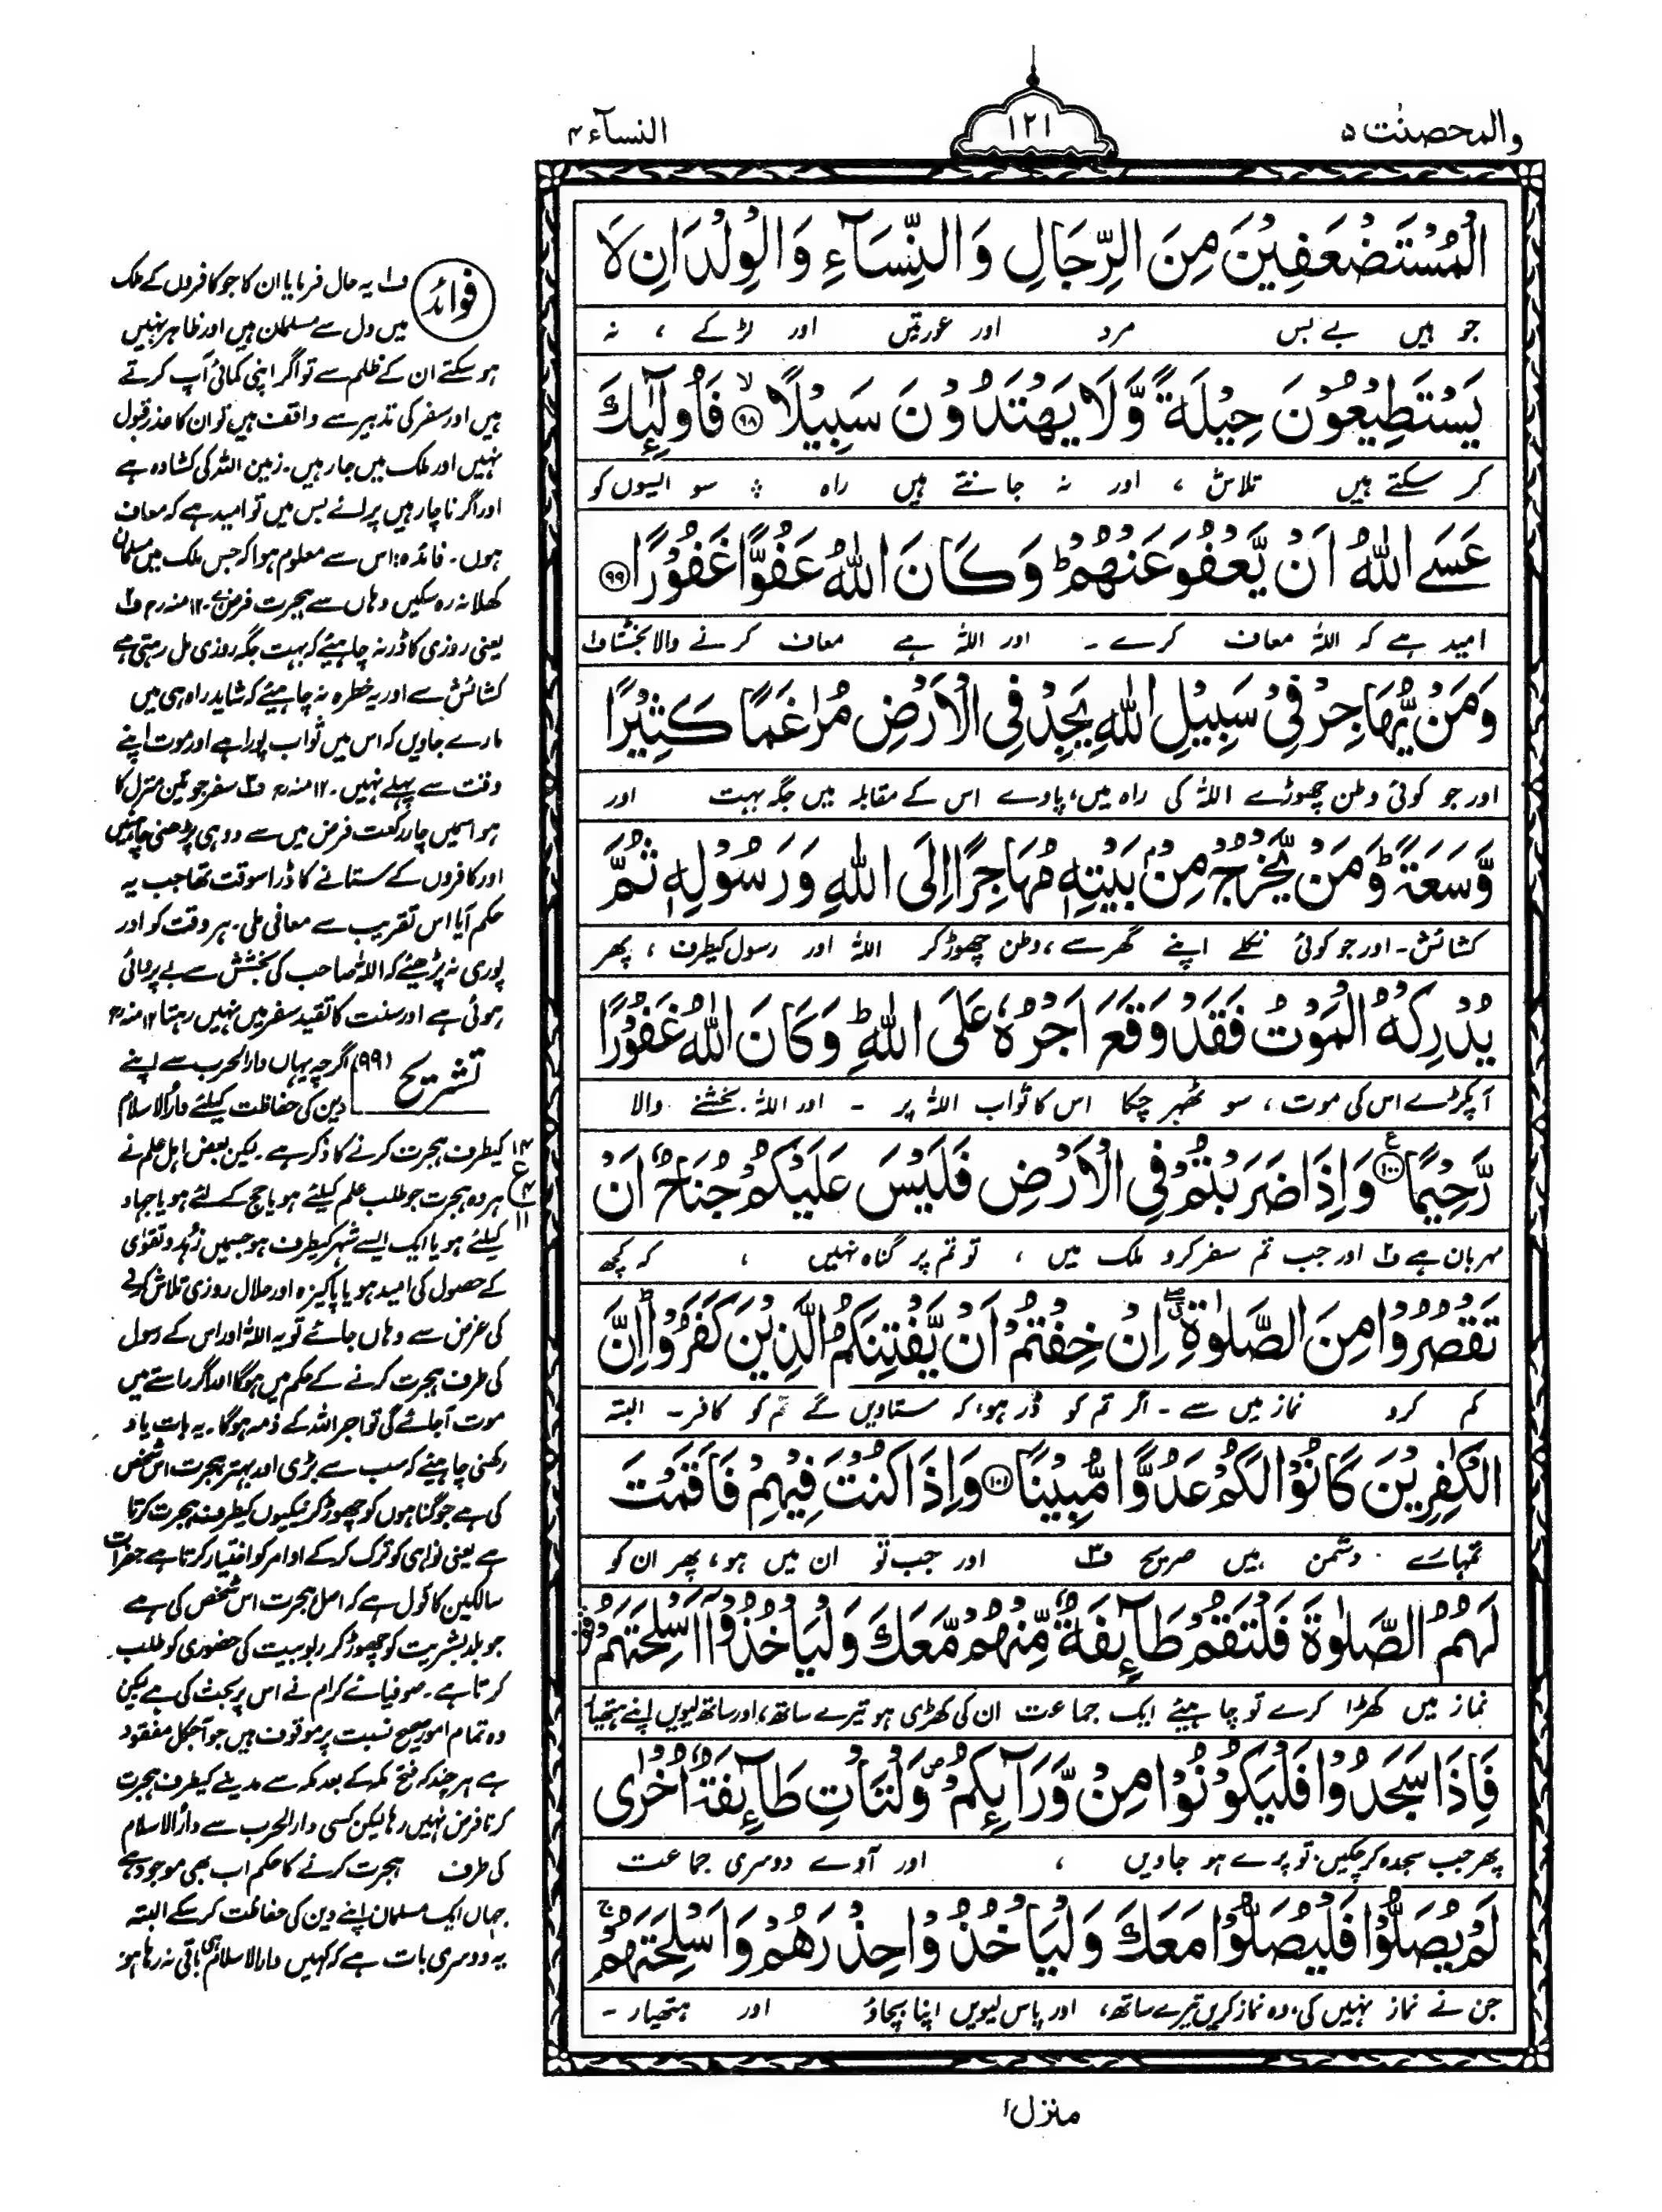 والمحصنٰت ۵
۱۲۱
النسآء ۴
الْمُسْتَضْعَفِيْنَ مِنَ الرِّجَالِ وَالنِّسَآءِ وَالْوِلْدَانِ لَا
جو ہیں بے بس مرد اور عورتیں اور لڑکے ، نہ
يَسْتَطِيْعُوْنَ حِيْلَةً وَّلَا يَهْتَدُوْنَ سَبِيْلًا ۙ﴿۹۸﴾ فَاُولٰٓئِكَ
کر سکتے ہیں تلاش ، اور نہ جانتے ہیں راہ ؞ سو ایسوں کو
عَسَى اللّٰهُ اَنْ يَّعْفُوَ عَنْهُمْ ؕ وَكَانَ اللّٰهُ عَفُوًّا غَفُوْرًا ﴿۹۹﴾
امید ہے کہ اللہ معاف کرے ۔ اور اللہ ہے معاف کرنے والا بخشتا ف۱
وَمَنْ يُّهَاجِرْ فِيْ سَبِيْلِ اللّٰهِ يَجِدْ فِي الْاَرْضِ مُرٰغَمًا كَثِيْرًا
اور جو کوئی وطن چھوڑے اللہ کی راہ میں، پاوے اس کے مقابلہ میں جگہ بہت اور
وَّسَعَةً ؕ وَمَنْ يَّخْرُجْ مِنْۢ بَيْتِهٖ مُهَاجِرًا اِلَى اللّٰهِ وَرَسُوْلِهٖ ثُمَّ
کشائش۔ اور جو کوئی نکلے اپنے گھر سے ، وطن چھوڑ کر اللہ اور رسول کیطرف ، پھر
يُدْرِكْهُ الْمَوْتُ فَقَدْ وَقَعَ اَجْرُهٗ عَلَى اللّٰهِ ؕ وَكَانَ اللّٰهُ غَفُوْرًا
آ پکڑے اس کی موت، سو ٹھہر چکا اس کا ثواب اللہ پر ۔ اور اللہ بخشنے والا
رَّحِيْمًا ﴿۱۰۰﴾ ع وَاِذَا ضَرَبْتُمْ فِي الْاَرْضِ فَلَيْسَ عَلَيْكُمْ جُنَاحٌ اَنْ
مہربان ہے ف۲ اور جب تم سفر کرو ملک میں ، تو تم پر گناہ نہیں ، کہ کچھ
تَقْصُرُوْا مِنَ الصَّلٰوةِ ۖ اِنْ خِفْتُمْ اَنْ يَّفْتِنَكُمُ الَّذِيْنَ كَفَرُوْا ؕ اِنَّ
کم کرو نماز میں سے ۔ اگر تم کو ڈر ہو، کہ ستاویں گے تم کو کافر ۔ البتہ
الْكٰفِرِيْنَ كَانُوْا لَكُمْ عَدُوًّا مُّبِيْنًا ﴿۱۰۱﴾ وَاِذَا كُنْتَ فِيْهِمْ فَاَقَمْتَ
تمہارے دشمن ہیں صریح ف۳ اور جب تو ان میں ہو، پھر ان کو
لَهُمُ الصَّلٰوةَ فَلْتَقُمْ طَآئِفَةٌ مِّنْهُمْ مَّعَكَ وَلْيَاْخُذُوْۤا اَسْلِحَتَهُمْ
نماز میں کھڑا کرے تو چاہیئے ایک جماعت ان کی کھڑی ہو تیرے ساتھ، اور ساتھ لیویں اپنے ہتھیار
فَاِذَا سَجَدُوْا فَلْيَكُوْنُوْا مِنْ وَّرَآئِكُمْ ۪ وَلْتَاْتِ طَآئِفَةٌ اُخْرٰى
پھر جب سجدہ کر چکیں، تو پرے ہو جاویں ، اور آوے دوسری جماعت
لَمْ يُصَلُّوْا فَلْيُصَلُّوْا مَعَكَ وَلْيَاْخُذُوْا حِذْرَهُمْ وَاَسْلِحَتَهُمْ ۚ
جن نے نماز نہیں کی، وہ نماز کریں تیرے ساتھ، اور پاس لیویں اپنا بچاؤ اور ہتھیار ۔
منزل۱
فوائد
ف۱ یہ حال فرمایا ان کا جو کافروں کے ملک
میں دل سے مسلمان ہیں اور ظاہر نہیں
ہو سکتے ان کے ظلم سے تو اگر اپنی کمائی آپ کرتے
ہیں اور سفر کی تدبیر سے واقف ہیں تو ان کا عذر قبول
نہیں اور ملک میں جا رہیں۔ زمین اللہ کی کشادہ ہے
اور اگر ناچار ہیں پرائے بس میں تو امید ہے کہ معاف
ہوں۔ فائدہ: اس سے معلوم ہوا کہ جس ملک میں مسلمان
کھلا نہ رہ سکیں وہاں سے ہجرت فرض ہے۔۱۲ منہ رح ف۲
یعنی روزی کا ڈر نہ چاہیئے کہ بہت جگہ روزی مل رہتی ہے
کشائش سے اور یہ خطرہ نہ چاہیئے کہ شاید راہ ہی میں
مارے جاویں کہ اس میں ثواب پورا ہے اور موت اپنے
وقت سے پہلے نہیں۔ ۱۲ منہ رح ف۳ سفر جو تین منزل کا
ہو اسمیں چار رکعت فرض میں سے دو ہی پڑھنی چاہئیں
اور کافروں کے ستانے کا ڈر اسوقت تھا جب یہ
حکم آیا اس تقریب سے معافی ملی۔ ہر وقت کو اور
پوری نہ پڑھیئے کہ اللہ صاحب کی بخشش سے بے پروائی
ہوئی ہے اور سنت کا تقید سفر میں نہیں رہتا ۱۲ منہ رح
تشریح
(۹۹) اگرچہ یہاں دارالحرب سے اپنے
دین کی حفاظت کیلئے دارالاسلام
کیطرف ہجرت کرنے کا ذکر ہے۔ لیکن بعض اہل علم نے
۱۴ ع ۴ ۱۱
ہر وہ ہجرت جو طلب علم کیلئے ہو یا حج کے لئے ہو یا جہاد
کیلئے ہو یا ایک ایسے شہر کیطرف ہو جسمیں زہد و تقوٰی
کے حصول کی امید ہو یا پاکیزہ اور حلال روزی تلاش کرنے
کی غرض سے وہاں جائے تو یہ اللہ اور اس کے رسول
کی طرف ہجرت کرنے کے حکم میں ہوگا اور اگر راستے میں
موت آجائے گی تو اجر اللہ کے ذمہ ہوگا۔ یہ بات یاد
رکھنی چاہیئے کہ سب سے بڑی اور بہتر ہجرت اس شخص
کی ہے جو گناہوں کو چھوڑ کر نیکیوں کیطرف ہجرت کرتا
ہے یعنی نواہی کو ترک کر کے اوامر کو اختیار کرتا ہے حضرات
سالکین کا قول ہے کہ اصل ہجرت اس شخص کی ہے
جو بلد بشریت کو چھوڑ کر ربوبیت کی حضوری کو طلب
کرتا ہے۔ صوفیائے کرام نے اس پر بحث کی ہے لیکن
وہ تمام امور صحیح نسبت پر موقوف ہیں جو آجکل مفقود
ہے ہر چند کہ فتح مکہ کے بعد مکہ سے مدینے کیطرف ہجرت
کرنا فرض نہیں رہا لیکن کسی دارالحرب سے دارالاسلام
کی طرف ہجرت کرنے کا حکم اب بھی موجود ہے
جہاں ایک مسلمان اپنے دین کی حفاظت کر سکے البتہ
یہ دوسری بات ہے کہ کہیں دارالاسلام ہی باقی نہ رہا ہو